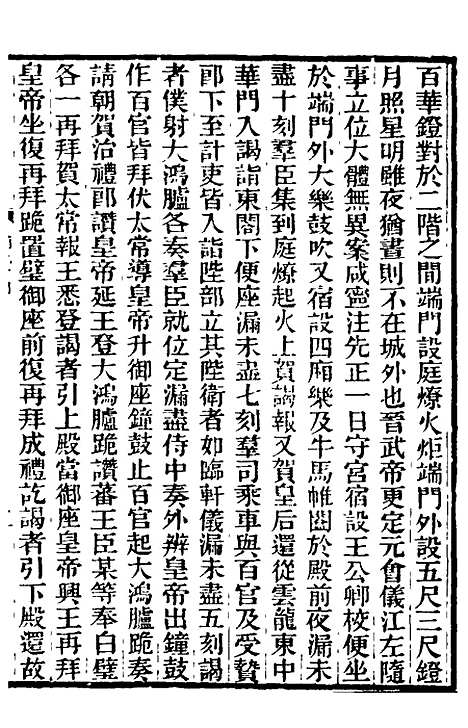 百華鐙對於二階之間端門設庭燎火炬端門外設五尺三尺鐙
月照星明雖夜猶晝則不在城外也晉武帝更定元會儀江左隨
事立位大體無異案咸寧注先正一日守宮宿設王公卿校便坐
於端門外大樂鼓吹又宿設四廂樂及牛馬帷閤於殿前夜漏未
盡十刻羣臣集到庭燎起火上賀謁報又賀皇后還從雲龍東中
華門入謁詣東閤下便座漏未盡七刻羣司乘車與百官及受贄
郎下至計吏皆入詣陛部立其陛衛者如臨軒儀漏未盡五刻謁
者僕射大鴻臚各奏羣臣就位定漏盡侍中奏外辨皇帝出鐘鼓
作百官皆拜伏太常導皇帝升御座鐘鼓止百官起大鴻臚跪奏
請朝賀治禮郎讚皇帝延王登大鴻臚跪讚蕃王臣某等奉白璧
各一再拜賀太常報王悉登謁者引上殿當御座皇帝興王再拜
皇帝坐復再拜跪置璧御座前復再拜成禮訖謁者引下殿還故